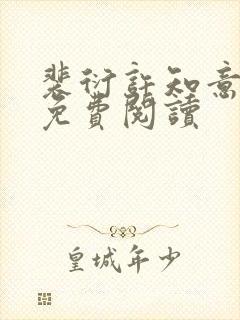 裴衍許知意
免費閱讀
皇城年少